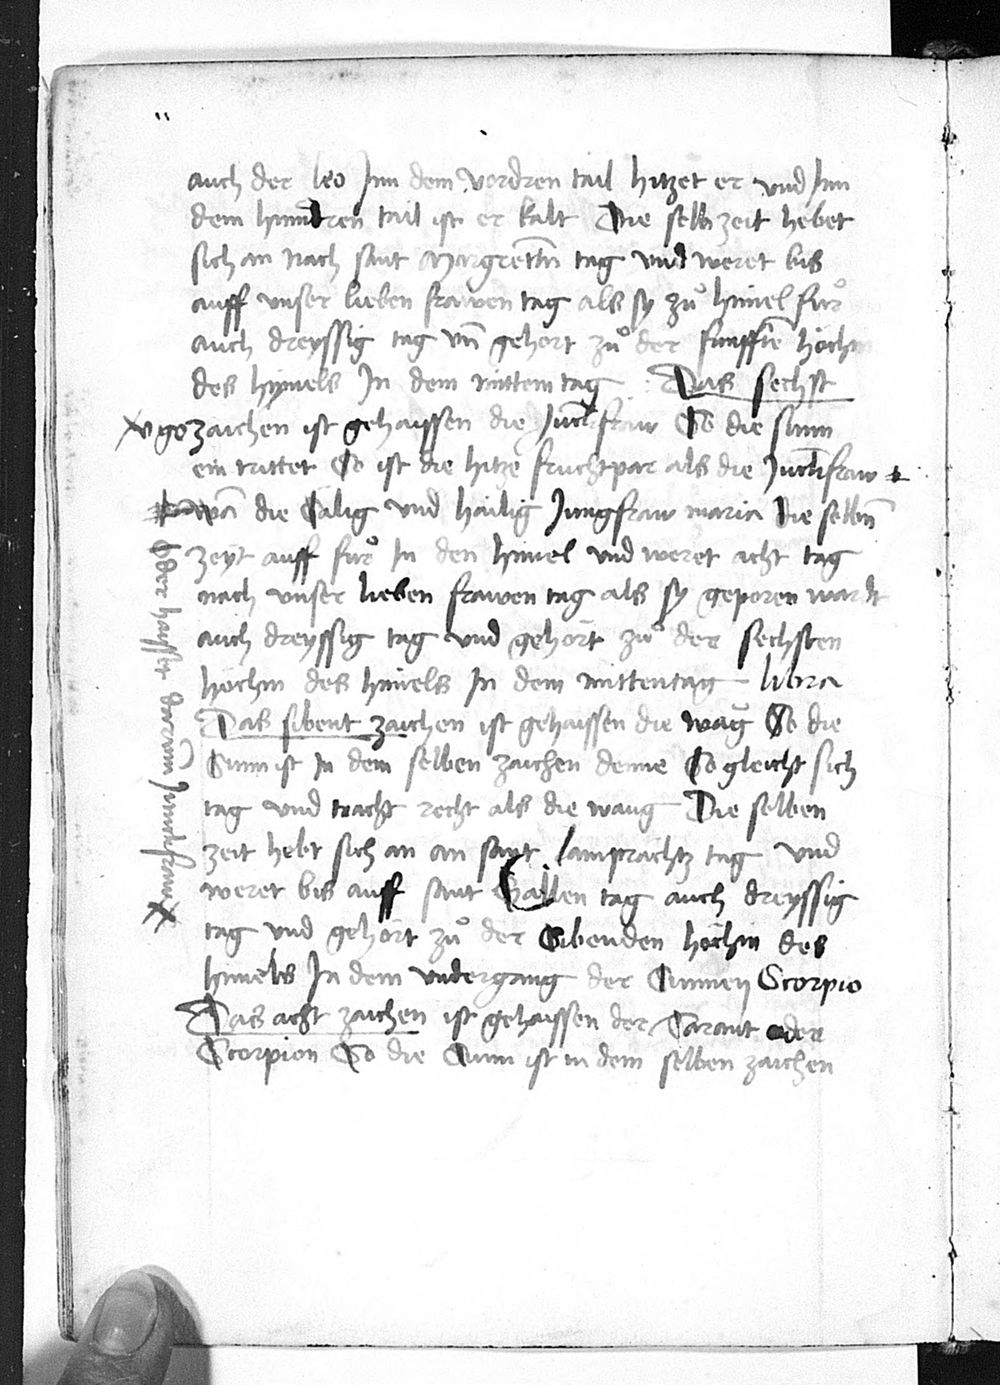 auch der leo Jnn dem vordren tail hitzet er vnd Jnn
dem hinndren tail ist er kalt Die selb zeit hebet
sich an nach sant Margreten tag vnd weret bis
auff vnser lieben frawen tag als sy zů himel fůr
auch dreyssig tag vn̄ gehört zů der funfften höchin
des hymels Jn dem mittemtag Das sechst
virgo zaichen ist gehaissen die Junckfraw So die sunn
ein trittet So ist die hitze fruchtpar als die Junckfraw
wan̄ die Sälig vnd hailig Jungfraw maria die selbn̄
zeyt auff fůr In den himel vnd weret acht tag
nach vnser lieben frawen tag als sy geporen wardt
auch dreyssig tag vnd gehört zů der sechsten
höchin des himels Jn dem mittentag libra
Das sibent zaichen ist gehaissen die wag So die
Sunn ist Jn dem selben zaichen denne So gleicht sich
tag vnd nacht recht als die waug Die selben
zeit hebt sich an an sant lamprächtz tag vnd
weret bis auff sant Gallen tag auch dreyssig
tag vnd gehört zů der Sibenden höchin des
himels Jn dem vndergang der Sunnen Scorpio
Das acht zaichen ist gehaissen der Tarant oder
Scorpion So die Sunn ist in dem selben zaichen
oder haysset darumb Junckfraw